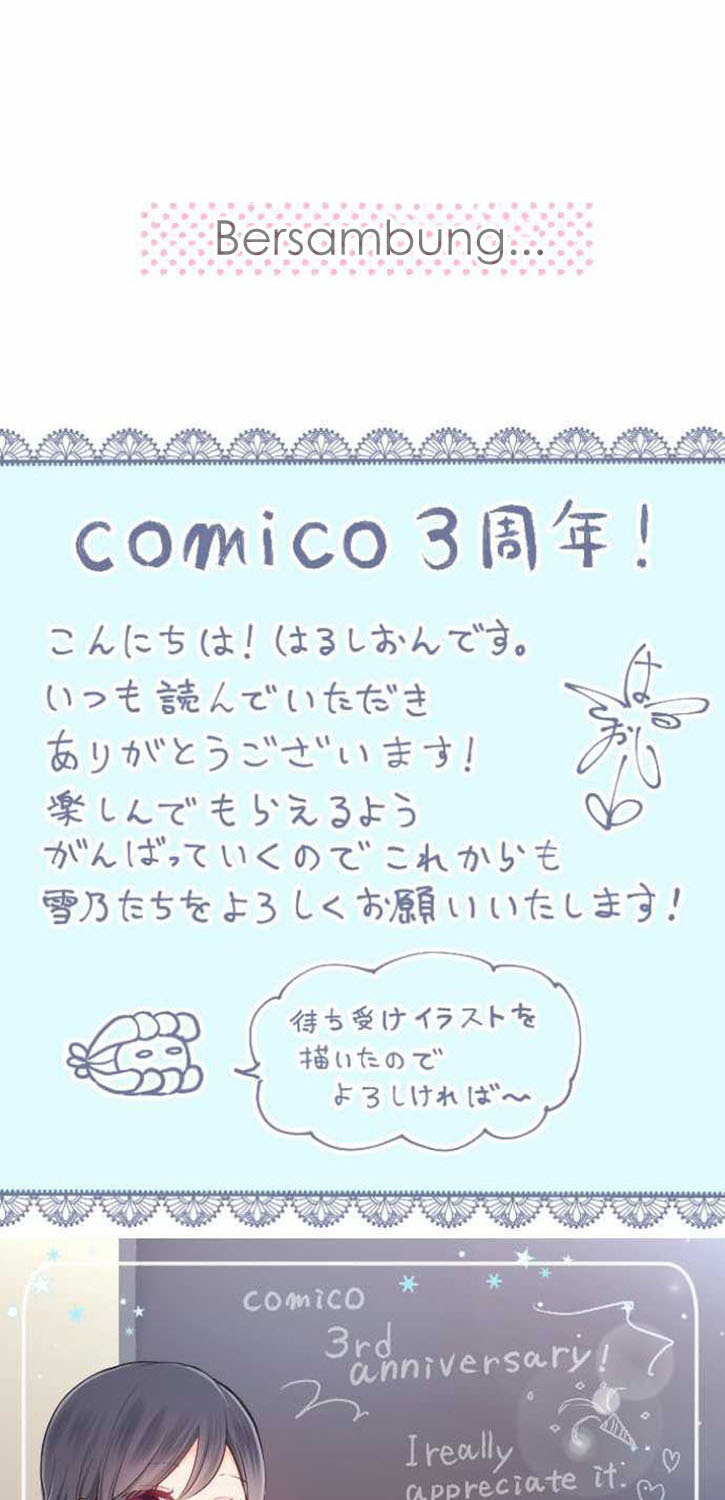 Bersambung...
comico 3周年!
こんにちは!はるしおんです。
いつも読んでいただき
ありがとうございます!
楽しんでもらえるよう
がんばっていくのでこれからも
雪乃たちをよろしくお願いいたします!
待ち受けイラストを
描いたので
よろしければ〜
comico
3rd
anniversary!
I really
appreciate it.